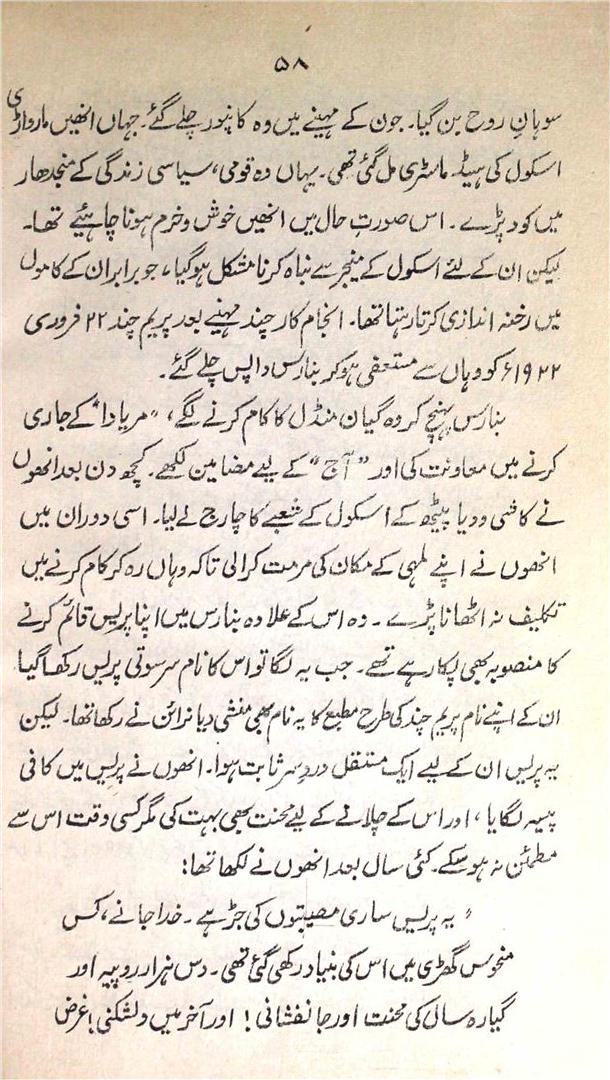 ۵۸
سوہانِ روح بن گیا۔ جون کے مہینے میں وہ کانپور چلے گئے۔ جہاں انھیں مارواڑی
اسکول کی ہیڈ ماسٹری مل گئی تھی۔ یہاں وہ قومی، سیاسی زندگی کے منجدھار
میں کود پڑے۔ اس صورتِ حال میں انھیں خوش و خرم ہونا چاہئیے تھا۔
لیکن ان کے لئے اسکول کے منیجر سے نباہ کرنا مشکل ہو گیا، جو برابر ان کے کاموں
میں رخنہ اندازی کرتا رہتا تھا۔ انجام کار چند مہینے بعد پریم چند ۲۲ فروری
۱۹۲۲ء کو وہاں سے مستعفی ہو کر بنارس واپس چلے گئے۔
بنارس پہنچ کر وہ گیان منڈل کا کام کرنے لگے، "مریادا" کے جاری
کرنے میں معاونت کی اور "آج" کے لیے مضامین لکھے۔ کچھ دن بعد انھوں
نے کاشی ودیا پیٹھ کے اسکول کے شعبے کا چارج لے لیا۔ اسی دوران میں
انھوں نے اپنے لمہی کے مکان کی مرمت کرالی تاکہ وہاں رہ کر کام کرنے میں
تکلیف نہ اٹھانا پڑے۔ وہ اس کے علاوہ بنارس میں اپنا پریس قائم کرنے
کا منصوبہ بھی پکا رہے تھے۔ جب یہ لگا تو اس کا نام سرسوتی پریس رکھا گیا
ان کے اپنے نام پریم چند کی طرح مطبع کا یہ نام بھی منشی دیا نرائن نے رکھا تھا۔ لیکن
یہ پریس ان کے لیے ایک مستقل دردِ سر ثابت ہوا۔ انھوں نے پریس میں کافی
پیسہ لگایا، اور اس کے چلانے کے لیے محنت بھی بہت کی مگر کسی وقت اس سے
مطمئن نہ ہو سکے۔ کئی سال بعد انھوں نے لکھا تھا:
"یہ پریس ساری مصیبتوں کی جڑ ہے۔ خدا جانے، کس
منحوس گھڑی میں اس کی بنیاد رکھی گئی تھی۔ دس ہزار روپیہ اور
گیارہ سال کی محنت اور جانفشانی! اور آخر میں دلشکنی! غرض